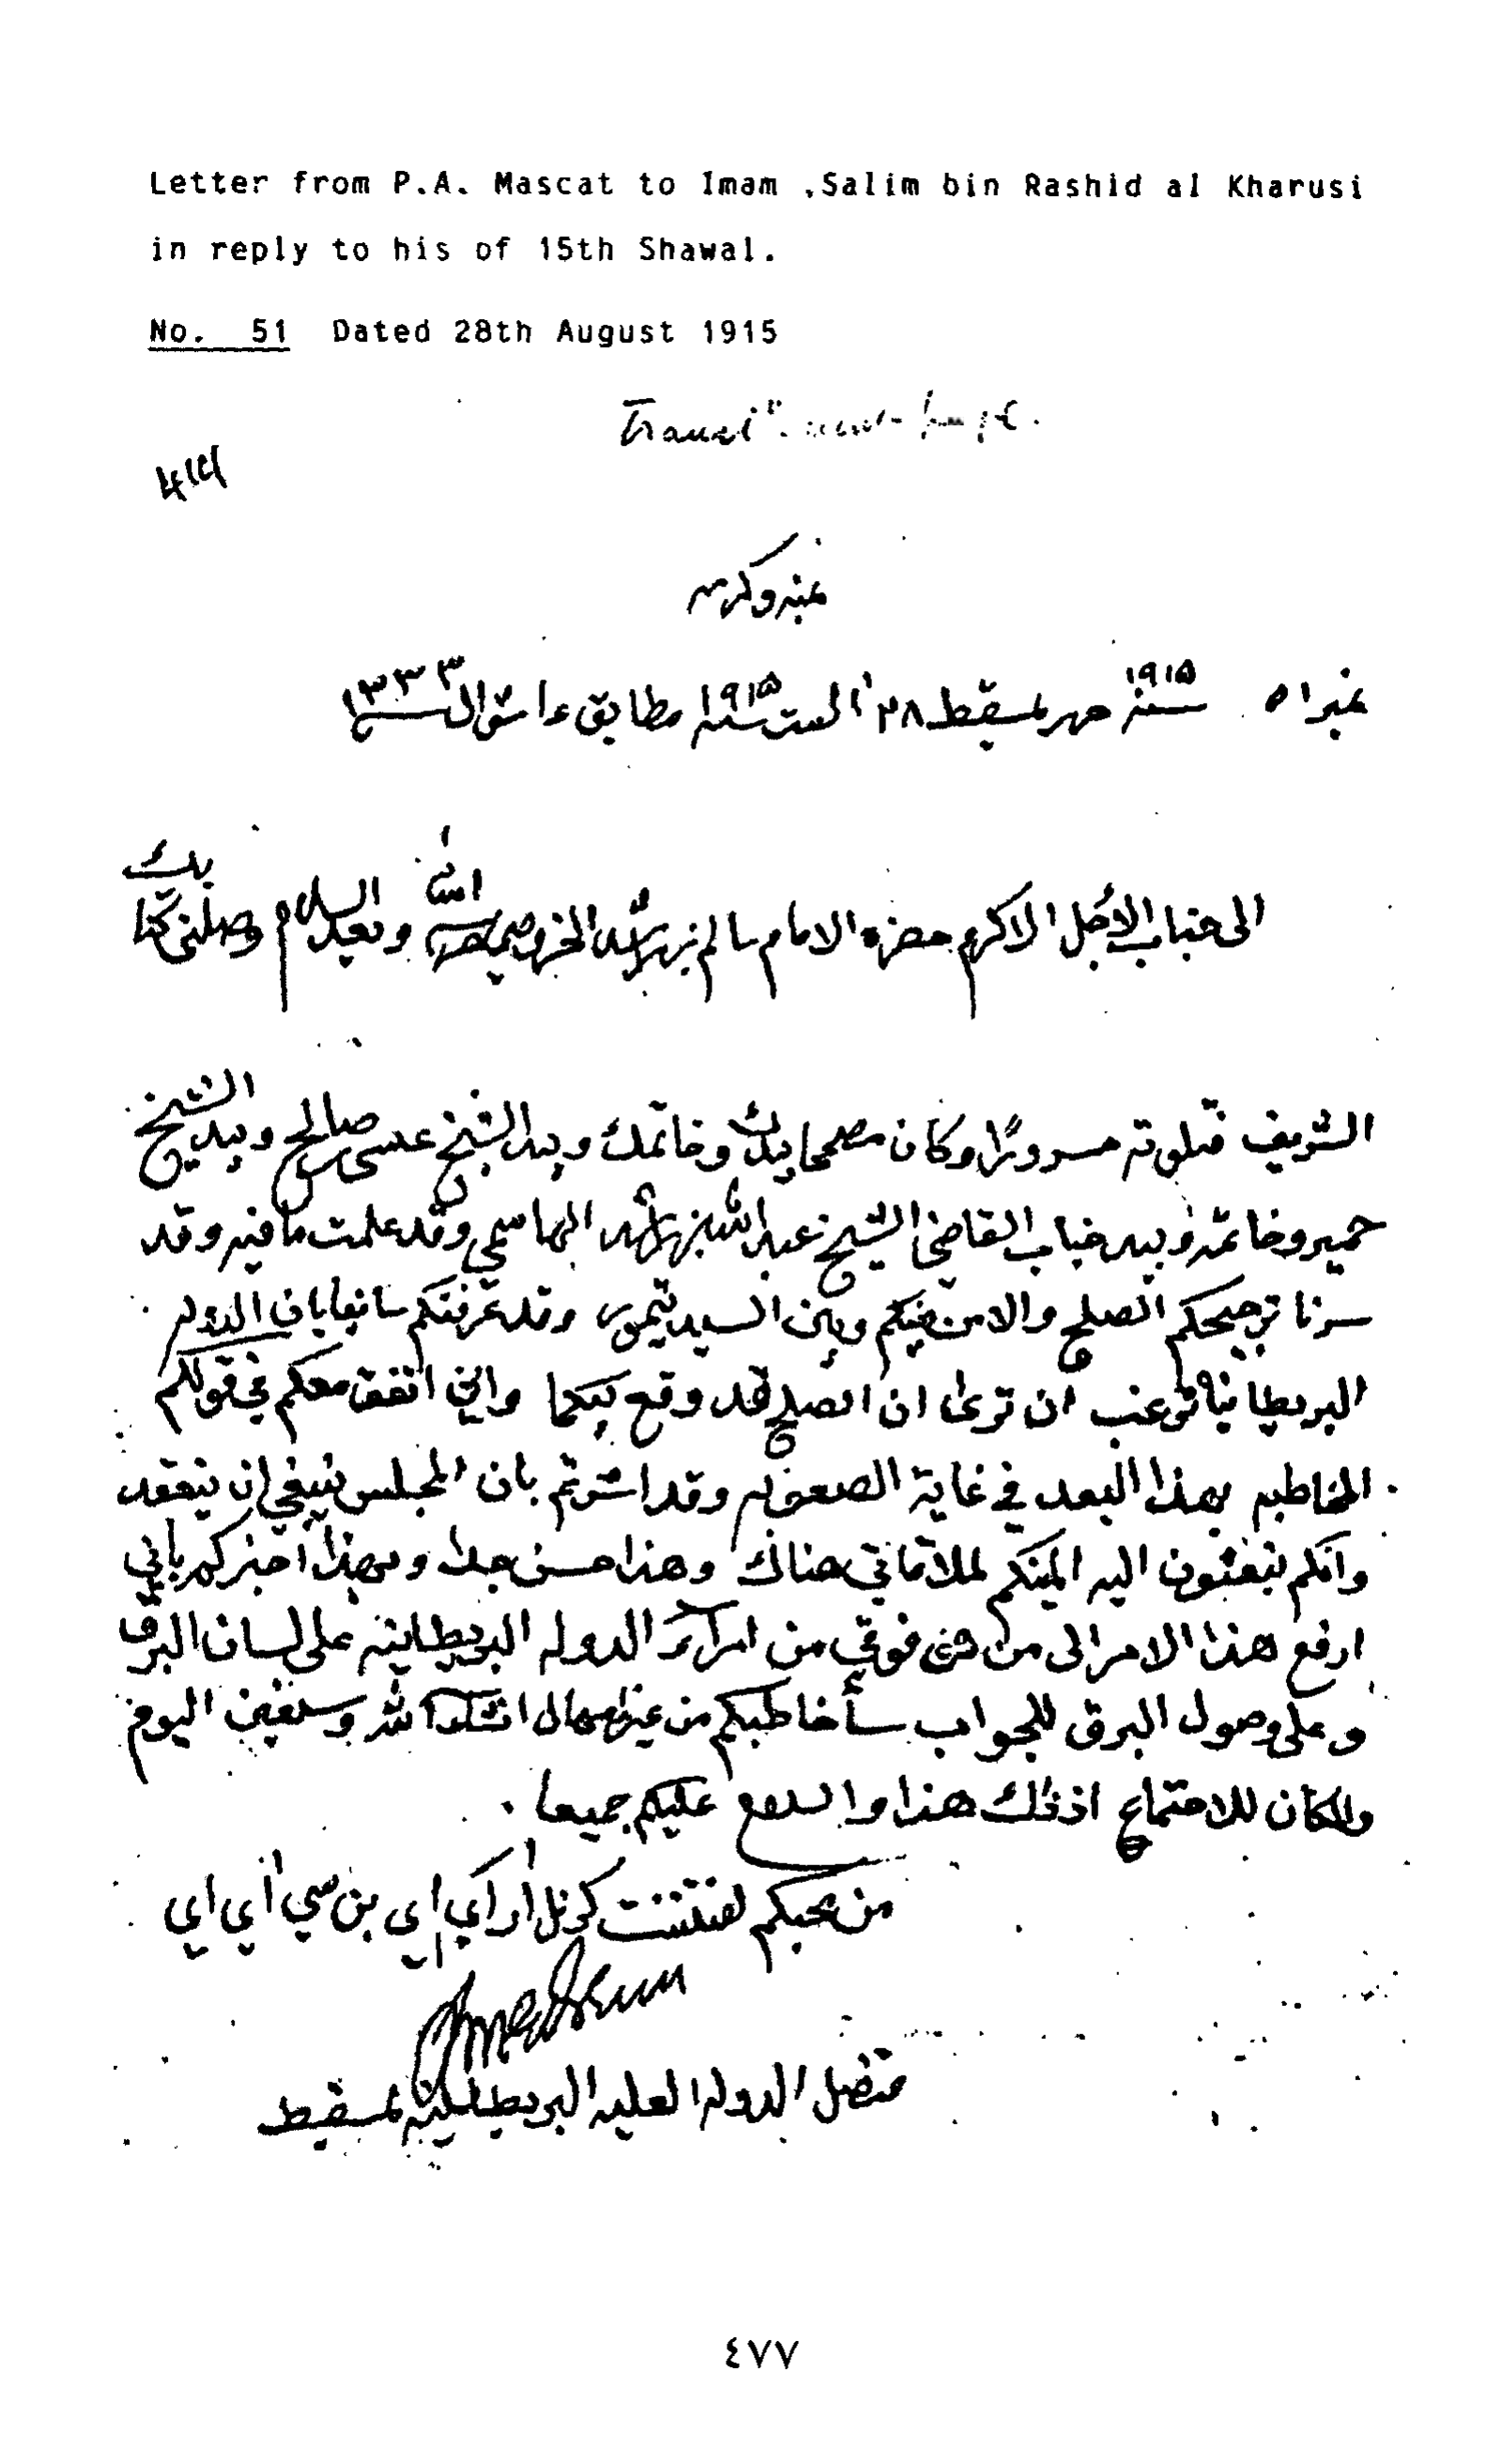 Letter from P.A. Mascat to Imam ,Salim bin Rashid al Kharusi
in reply to his of 15th Shawal.
No. 51 Dated 28th August 1915
بمنه وكرمه
نمبر ٥١ سنة ١٩١٥ حرر بمسقط ٢٨ اگست سنة ١٩١٥ مطابق شوال سنة ١٣٣٣
الى جناب الاجل الاكرم حضرة الامام سالم بن راشد الخروصي سلمه الله وبعد السلام وصلني كتابك
الشريف فتلوته مسرورًا وكان مصححا بيدك وخاتمك وبيد الشيخ عيسى بن صالح وبيد الشيخ
حمير وخاتمه وبيد جناب القاضي الشيخ عبد الله بن راشد الهاشمي وقد علمت ما فيه وقد
سرنا ترجيحكم الصلح والامن بينكم وبين السيد تيمور وقد عرفتكم سابقا بان الدولة
البريطانية ترغب ان ترى ان الصلح قد وقع بينكما واني اتفق معكم في قولكم
المخاطبه بهذا البعد في غاية الصعوبه وقد اشرتم بان المجلس ينبغي ان ينعقد
وانكم تبعثون اليه امينكم لملاقاتي هناك وهذا حسن جدا وبهذا اخبركم باني
ارفع هذا الامر الى من هو فوقي من امراء الدوله البريطانيه على لسان البرق
وعلى وصول البرق للجواب سأخاطبكم من غير اهمال انشاء الله وسنعين اليوم
والمكان للاجتماع اذ ذلك هذا والسلام عليكم جميعا .
من محبكم لفتننت كرنل ار اي اي بن سي اي اي
قنصل الدوله العليه البريطانيه بمسقط
٤٧٧